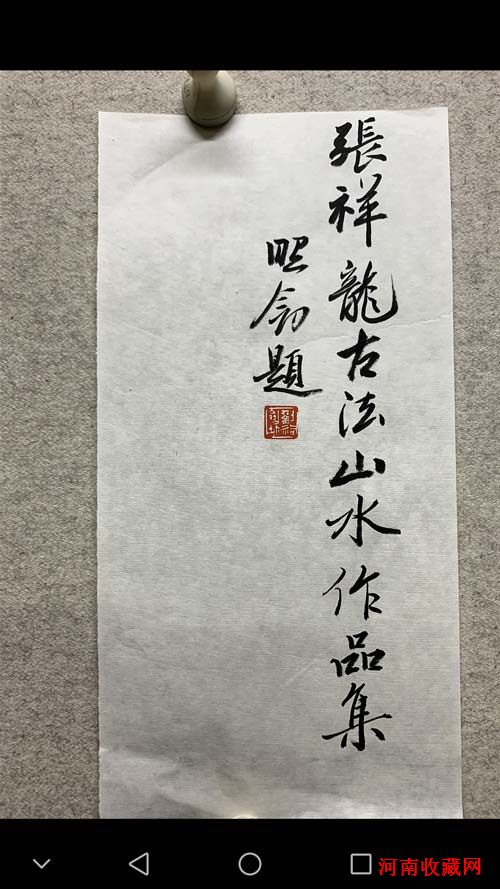 張祥龍古法山水作品集
照劍題
河南收藏网